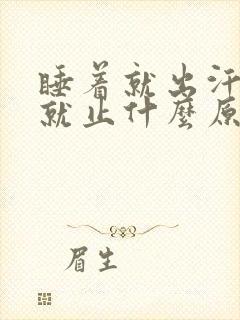 睡着就出汗
就止什麼原
眉生